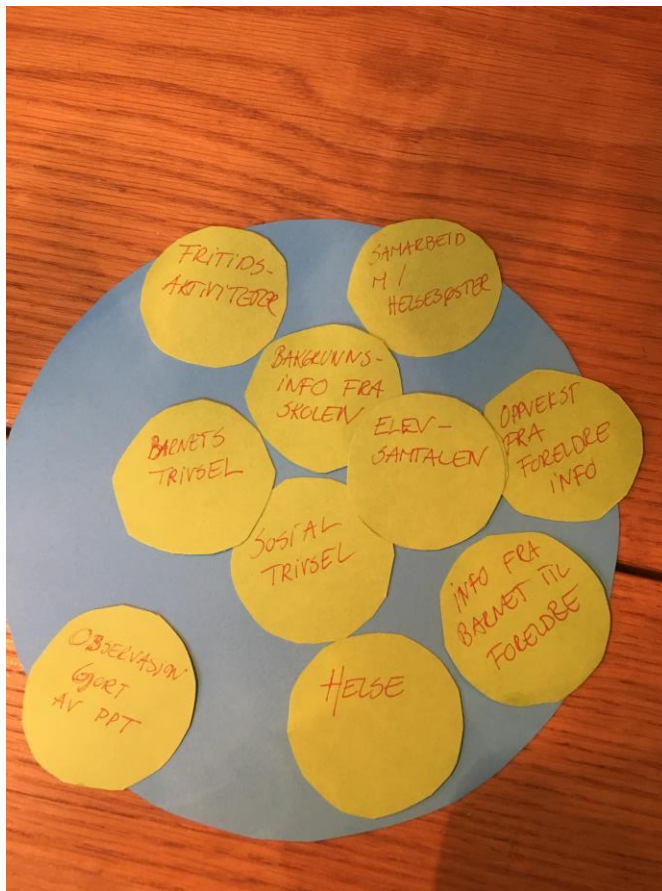 FRITIDS-
AKTIVITETER
SAMARBEID
M /
HELSESØSTER
BAKGRUNNS-
INFO FRA
SKOLEN
ELEV-
SAMTALEN
OPPVEKST
FRA
FORELDRE
INFO
BARNETS
TRIVSEL
SOSIAL
TRIVSEL
INFO FRA
BARNET TIL
FORELDRE
OBSERVASJON
GJORT
AV PPT
HELSE